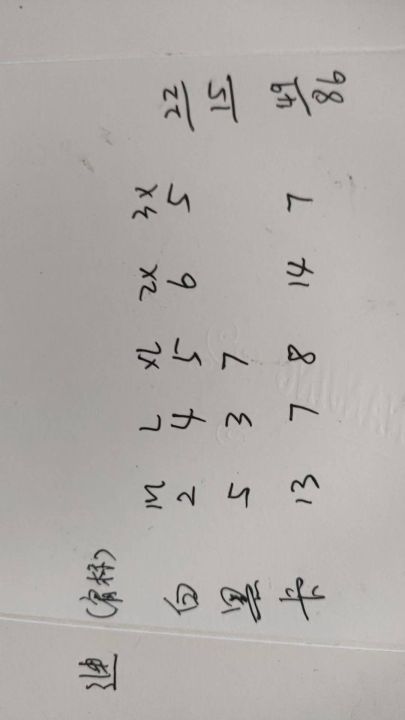 (有标)
M L XL 2X 3X
白 2 4 5 6 5 22
黑 5 3 7 15
卡 13 7 8 14 7 49
86